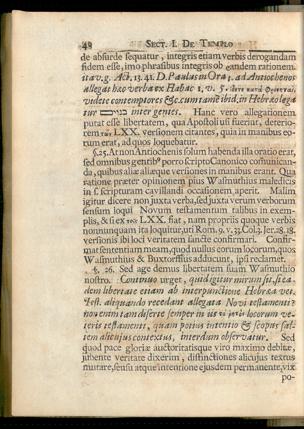 48 SECT. I. DE TEMPLO
de absurde sequatur, integris etiam verbis derogandam
fidem esse, imo phrasibus integris ob eandem rationem.
ita v. g. Act. 13. 41. D. Paulus in Ora ad Antiochenos
allegat hæc verba ex Habac 1. v. 5.
videte contemptores &c. cum tamē ibid. in Hebræo lega
tur בגוים inter gentes. Hanc vero allegationem
putat esse libertatem, qua Apostolus fuerit, deterio-
rem LXX. versionem citantes, quia in manibus eo-
rum erat, ad quos loquebatur.
§. 25. At non Antiochenis solum habenda illa oratio erat,
sed omnibus gentibꝰ porro scripto Canonico communican-
da, quibus aliæ aliæque versiones in manibus erant. Qua
ratione præter opinionem pius Wasmuthius maledicis
in S. scripturam cavillandi occasionem aperit. Malim
igitur dicere non juxta verba, sed juxta verum verborum
sensum loqui Novum testamentum talibus in exem-
plis, & si ex LXX. fiat, nam propriis quoque verbis
nonnunquam ita loquitur, uti Rom. 9. v. 33. Col. 3. Ier. 28. 18.
versionis ibi loci veritatem sancte confirmari. Confir-
mat sententiam meam, quod nullus eorum locorum, quos
Wasmuthius & Buxtorffius adducunt, ipsi reclamet.
§. 26. Sed age demus libertatem suam Wasmuthio
nostro. Continuo urget, quid igitur mirum sit, si ea-
dem libertate etiam ab interpunctione Hebræa vet.
Test. aliquando recedant allegata Novi testamenti?
non enim tam diserte semper in iis locorum ve-
teris testamenti, quam potius intentio & scopus sal-
tem alicujus contextus, interdum observatur. Sed
quod pace gloriæ auctoritatisque viro maximo debitæ,
jubente veritate dixerim, distinctiones alicujus textus
mutare, sensu atque intentione ejusdem permanente, vix
po-